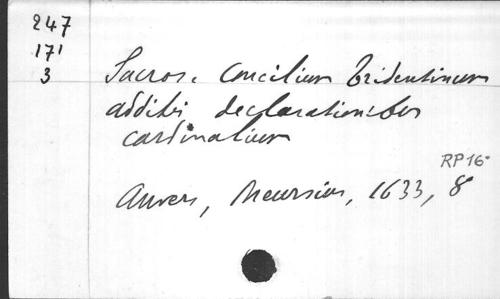 247
171
3
Sacros. Concilium tridentinum
additis declarationibus
cardinalium
RP16-
Anvers, Meursius, 1633, 8°